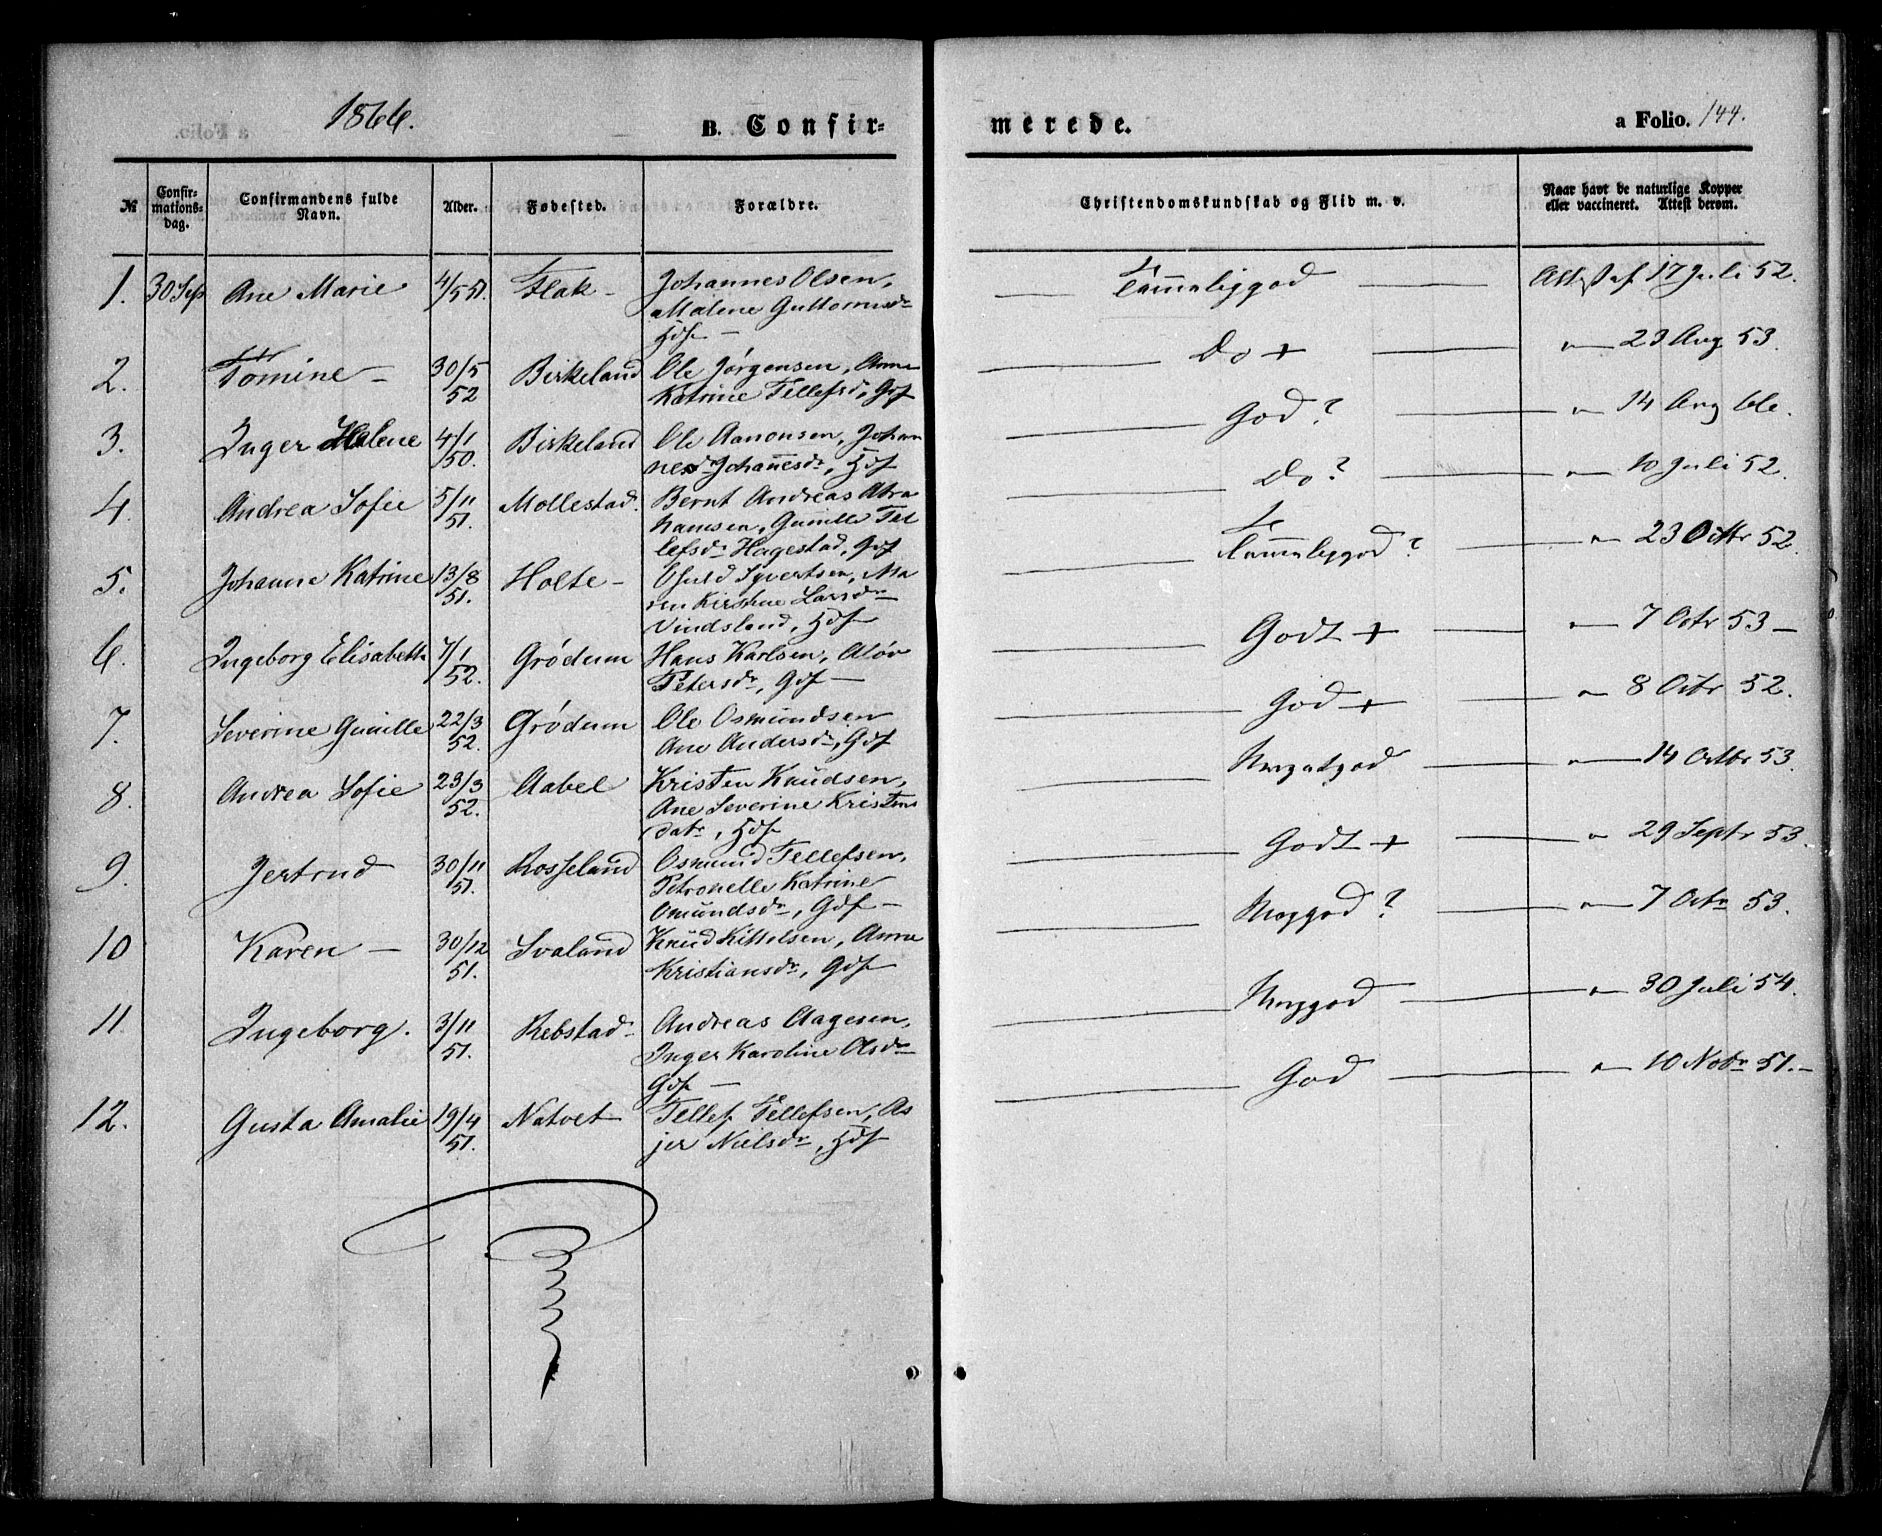 1866.
B. Confirmerede.
a Folio. 144.
№ Confirmationsdag. Confirmandens fulde Navn. Alder. Fødested. Forældre. Christendomskundskab og Flid m. v. Naar havt de naturlige Kopper eller vaccineret. Attest derom.
1. 30 Sept Ane Marie 4/5 51. Flak – Johannes Olsen,
Malene Guttormsdr
Hdf –
Temmeliggod Attest af 17 Juli 52.
2. Tomine – 30/5 52 Birkeland Ole Jørgensen, Anne
Katrine Tellefsd, Gdf
Do + " 23 Aug 53.
3. Inger Helene 4/1 50. Birkeland Ole Aanonsen, Johan
nesdr Johannesdr, Hdf
God? " 14 Aug 66.
4. Andrea Sofie 5/11 51. Mollestad. Bernt Andreas Abra
hamsen, Gunille Tel
lefsdr Hagestad, Gdf
Do? " 10 Juli 52.
5. Johanne Katrine 13/8 51. Holte – Osuld Syvertsen, Ma
ren Kirstine Larsdr
Vindsland, Hdf
Temmeliggod? " 23 Octbr 52.
6. Ingeborg Elisabeth 7/1 52. Grødum Hans Karlsen,
Petersdr, Gdf –
Godt + " 7 Octr 53 –
7. Severine Gunille 22/3 52. Grødum Ole Osmundsen
Ane Andersdr, Gdf
God + " 8 Octbr 52.
8. Andrea Sofie 23/3 52. Aabel Kristen Knudsen,
Ane Severine Kristens
datr, Hdf
Megetgod " 14 Octbr 53.
9. Jertrud 30/11 51. Rosseland Osmund Tellefsen,
Petronelle Katrine
Omundsdr, Gdf –
Godt + " 29 Septr 53.
10 Karen – 30/12 51. Svaland Knud Kittelsen, Anne
Kristiansdr, Gdf
Meggod? " 7 Octr 53.
11 Ingeborg. 3/11 51. Rebstad Andreas Aagesen,
Inger Karoline Olsdr
Gdf –
Meggod " 30 Juli 54.
12. Gusta Amalie 19/4 51. Natvet Tellef Tellefsen, As
jer Nielsdr, Hdf
God " 10 Nobr 51. –